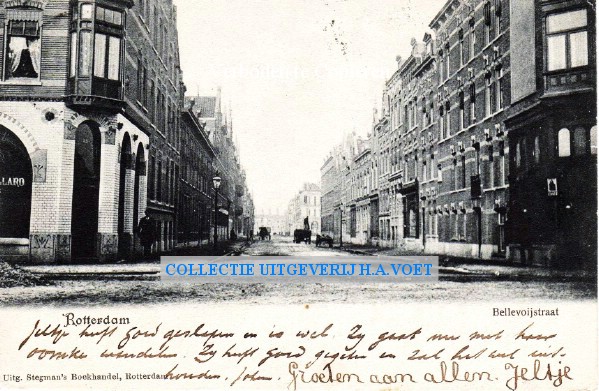 LLARD
COLLECTIE UITGEVERIJ H.A.VOET
Rotterdam
Bellevoijstraat
Jeltje heeft goed geslapen en is wel. Zij gaat nu met haar
oomke wandelen. Zij heeft goed gegeten en zal het wel uit-
houden. Groeten aan allen. Jeltje
Uitg. Stegman's Boekhandel, Rotterdam